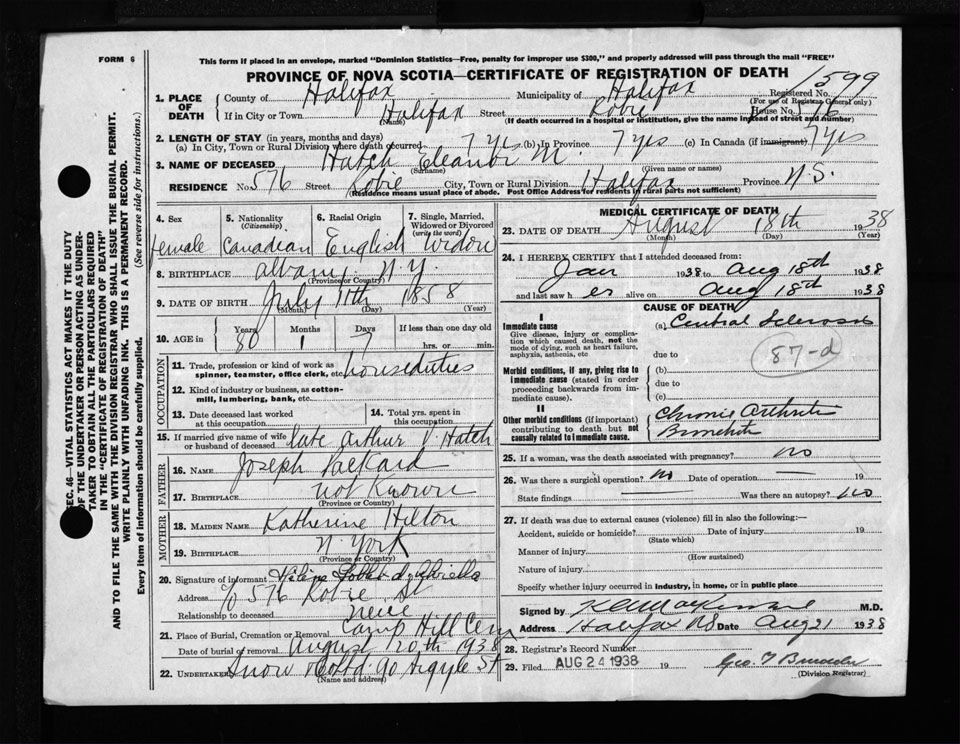 FORM 6
This form if placed in an envelope, marked "Dominion Statistics—Free, penalty for improper use $300," and properly addressed will pass through the mail "FREE"
PROVINCE OF NOVA SCOTIA—CERTIFICATE OF REGISTRATION OF DEATH
1599
Registered No.
(For use of Registrar General only)
SEC. 46—VITAL STATISTICS ACT MAKES IT THE DUTY
OF THE UNDERTAKER OR PERSON ACTING AS UNDERTAKER TO OBTAIN ALL THE PARTICULARS REQUIRED
IN THE "CERTIFICATE OF REGISTRATION OF DEATH"
AND TO FILE THE SAME WITH THE DIVISION REGISTRAR WHO SHALL ISSUE THE BURIAL PERMIT.
WRITE PLAINLY WITH UNFADING INK. THIS IS A PERMANENT RECORD.
Every item of information should be carefully supplied. (See reverse side for instructions.)
1. PLACE OF DEATH
County of Halifax Municipality of Halifax
If in City or Town Halifax Street Robie House No. 576
(Name) (If death occurred in a hospital or institution, give the name instead of street and number)
2. LENGTH OF STAY (in years, months and days)
(a) In City, Town or Rural Division where death occurred 7 yrs (b) In Province 7 yrs (c) In Canada (if immigrant) 7 yrs
3. NAME OF DECEASED Hatch Eleanor M.
(Surname) (Given name or names)
RESIDENCE No. 576 Street Robie City, Town or Rural Division Halifax Province N.S.
(Residence means usual place of abode. Post Office Address for residents in rural parts not sufficient)
4. Sex female
5. Nationality (Citizenship) Canadian
6. Racial Origin English
7. Single, Married, Widowed or Divorced (write the word) Widow
8. BIRTHPLACE Albany N.Y.
(Province or Country)
9. DATE OF BIRTH July 11th 1858
(Month) (Day) (Year)
10. AGE in Years 80 Months 1 Days 7 If less than one day old hrs. or min.
11. Trade, profession or kind of work as spinner, teamster, office clerk, etc. houseduties
12. Kind of industry or business, as cotton-mill, lumbering, bank, etc.
13. Date deceased last worked at this occupation
14. Total yrs. spent in this occupation
15. If married give name of wife or husband of deceased late Arthur V Hatch
FATHER
16. NAME Joseph Packard
17. BIRTHPLACE not Known
(Province or Country)
MOTHER
18. MAIDEN NAME Katherine Hilton
19. BIRTHPLACE N. York
(Province or Country)
20. Signature of informant
Address % 576 Robie St
Relationship to deceased niece
21. Place of Burial, Cremation or Removal Camp Hill Cem
Date of burial or removal August 20th 1938
22. UNDERTAKER Snow & Co Ltd. 90 Argyle St
(Name and address)
MEDICAL CERTIFICATE OF DEATH
23. DATE OF DEATH August 18th 1938
(Month) (Day) (Year)
24. I HEREBY CERTIFY that I attended deceased from:
Jan 1938 to Aug 18th 1938
and last saw her alive on Aug 18th 1938
CAUSE OF DEATH
I
Immediate cause
Give disease, injury or complication which caused death, not the mode of dying, such as heart failure, asphyxia, asthenia, etc
(a) Central Sclerosis
due to
87-d
Morbid conditions, if any, giving rise to immediate cause (stated in order proceeding backwards from immediate cause).
(b)
due to
(c)
II
Other morbid conditions (if important) contributing to death but not causally related to immediate cause.
Chronic Arthritis
Bronchitis
25. If a woman, was the death associated with pregnancy? no
26. Was there a surgical operation? no Date of operation 19
State findings Was there an autopsy? no
27. If death was due to external causes (violence) fill in also the following:—
Accident, suicide or homicide? Date of injury 19
(State which)
Manner of injury
(How sustained)
Nature of injury
Specify whether injury occurred in industry, in home, or in public place
Signed by M.D.
Address Halifax NS Date Aug 21 1938
28. Registrar's Record Number
29. Filed AUG 24 1938 19
(Division Registrar)